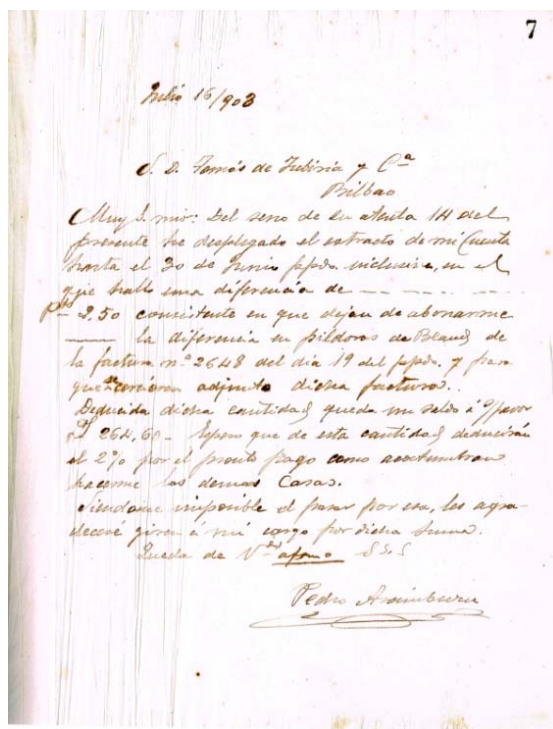 7
Julio 16/903
S. D. Tomás de Zubiria y Cª
Bilbao
Muy S. mio: Del seno de su atenta 14 del
presente he desplegado el extracto de mi Cuenta
hasta el 30 de Junio ppdo. inclusive, en el
que hallo una diferencia de
pts 2,50 consistente en que dejan de abonarme
la diferencia en pildoras de Blaud de
la factura n.º 2648 del dia 19 del ppdo. y para
que se adjunto dicha factura.
Deducida dicha cantidad queda un saldo á s/favor
264,60 - Espero que de esta cantidad deducirán
el 2% por el pronto pago como acostumbran
hacerme las demas Casas.
Siendome imposible el pasar por esa, les agra-
deceré giren á mi cargo por dicha suma.
Queda de Vds afsmo S.S.S
Pedro Aramburu